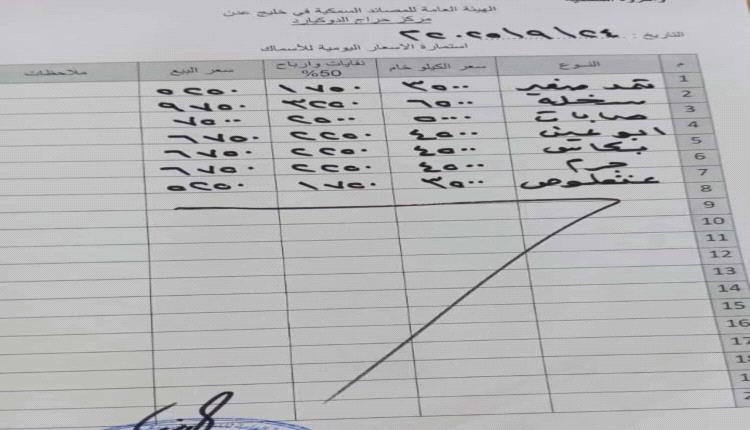 الهيئة العامة للمصائد السمكية في خليج عدن
مركز حراج الدوكيارد
التاريخ :
استمارة الاسعار اليومية للأسماك
م النوع سعر الكيلو خام نفايات وارباح 50% سعر البيع ملاحظات
1 ثمد صغير ٣٥٠٠ ١٧٥٠ ٥٢٥٠
2 سخلة ٦٥٠٠ ٣٢٥٠ ٩٧٥٠
3 ٥٠٠٠ ٢٥٠٠ ٧٥٠٠
4 ابو عين ٤٥٠٠ ٢٢٥٠ ٦٧٥٠
5 ٤٥٠٠ ٢٢٥٠ ٦٧٥٠
6 ٤٥٠٠ ٢٢٥٠ ٦٧٥٠
7 ٣٥٠٠ ١٧٥٠ ٥٢٥٠
8
9
10
11
12
13
14
15
16